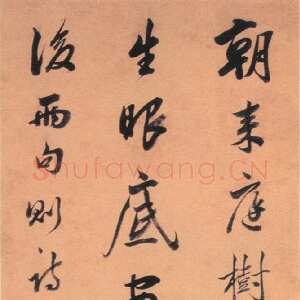 朝来庭樹
生眼底安
後兩句則詩
Shufawang.CN